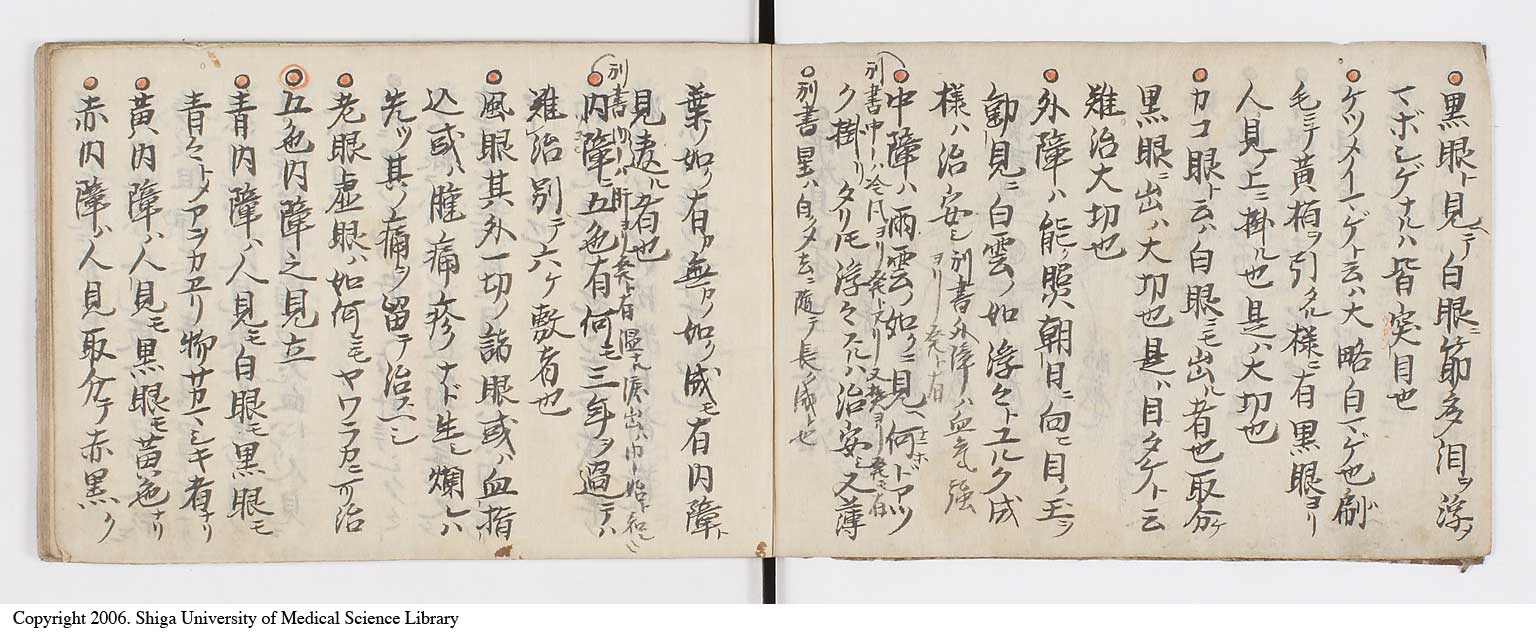 黒眼ト見ヘテ白眼ニ筋多泪ヲ浮フ
マボシゲナルハ皆突目也
ケツメイマゲト云ハ大略白マゲ也刷
毛ニテ黄栢ヲ引タル様ニ有黒眼ヨリ
人見ノ上ニ掛ル也是ハ大切也
カコ眼ト云ハ白眼ニモ出ル者也取分ケ
黒眼ニ出ハ大切也是ハ目タケト云
難治大切也
外障ハ能ク照ス朝日ニ向ヒ目ノ玉ヲ
動見ニ白雲ノ如浮々トユルク成
様ハ治安シ
別書外障ハ血気強
ヨリ発ト有
中障ハ雨雲ノ如クニ見ヘ何トアツ
別書中ハ冷風ヨリ発ト有
ク掛リタリ圧浮々タルハ治安シ又薄
別書星ハ白ク去ニ随テ長ク成ト也
葉ノ如ク有カ無カノ如ク成モ有内障ト
見違ル者也
内障ニ五色有何モ三年ヲ過テハ
別書内ハ肝ヨリ発ト有
難治別テ六ケ敷者也
風眼其外一切ノ諸眼或ハ血指
込或ハ腫痛疼ナド生シ爛レハ
先ツ其ノ痛ヲ留テ治スヘシ
老眼虚眼ハ如何ニモヤワラカニ可治
五色内障之見立
青内障ハ人見モ白眼モ黒眼モ
青々トメアヲカエリ物サカマシキ者ナリ
黄内障ハ人見モ黒眼モ黄色ナリ
赤内障ハ人見取分テ赤黒ク
Copyright 2006. Shiga University of Medical Science Library